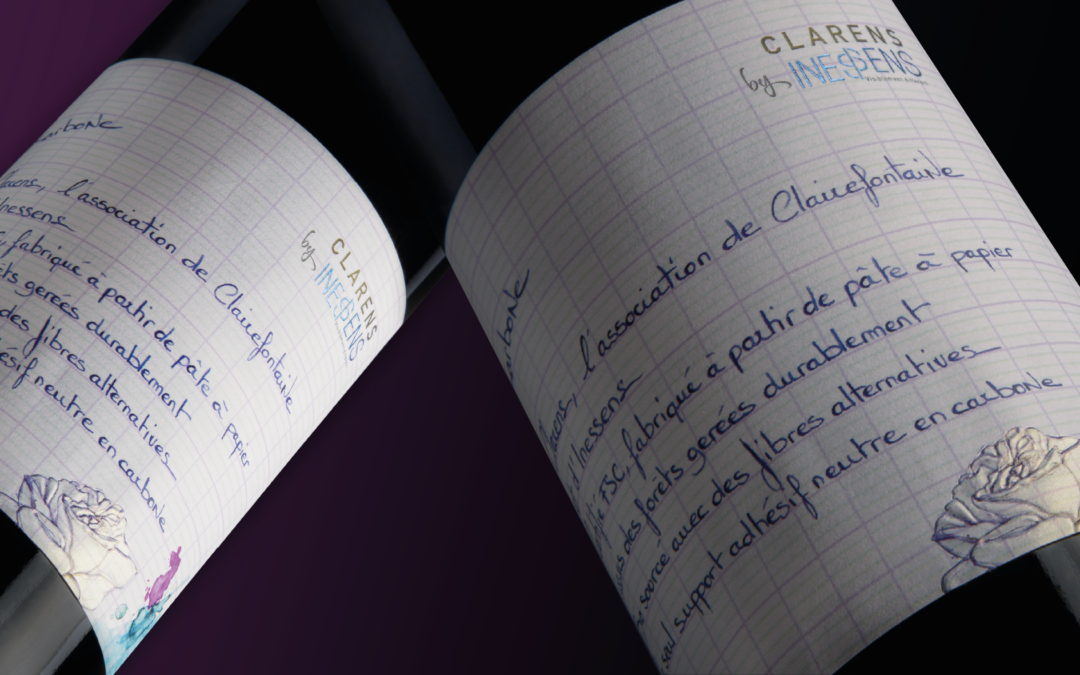 l'association de Clairefontaine
Inessens
fabriqué à partir de pâte à papier
gerées durablement
des fibres alternatives
neutre en carbone
CLARENS
by INESSENS
CLARENS
by INESSENS
l'association de Clairefontaine
d'Inessens
FSC, fabriqué à partir de pâte à papier
des forêts gerées durablement
sourcé avec des fibres alternatives
seul support adhésif neutre en carbone